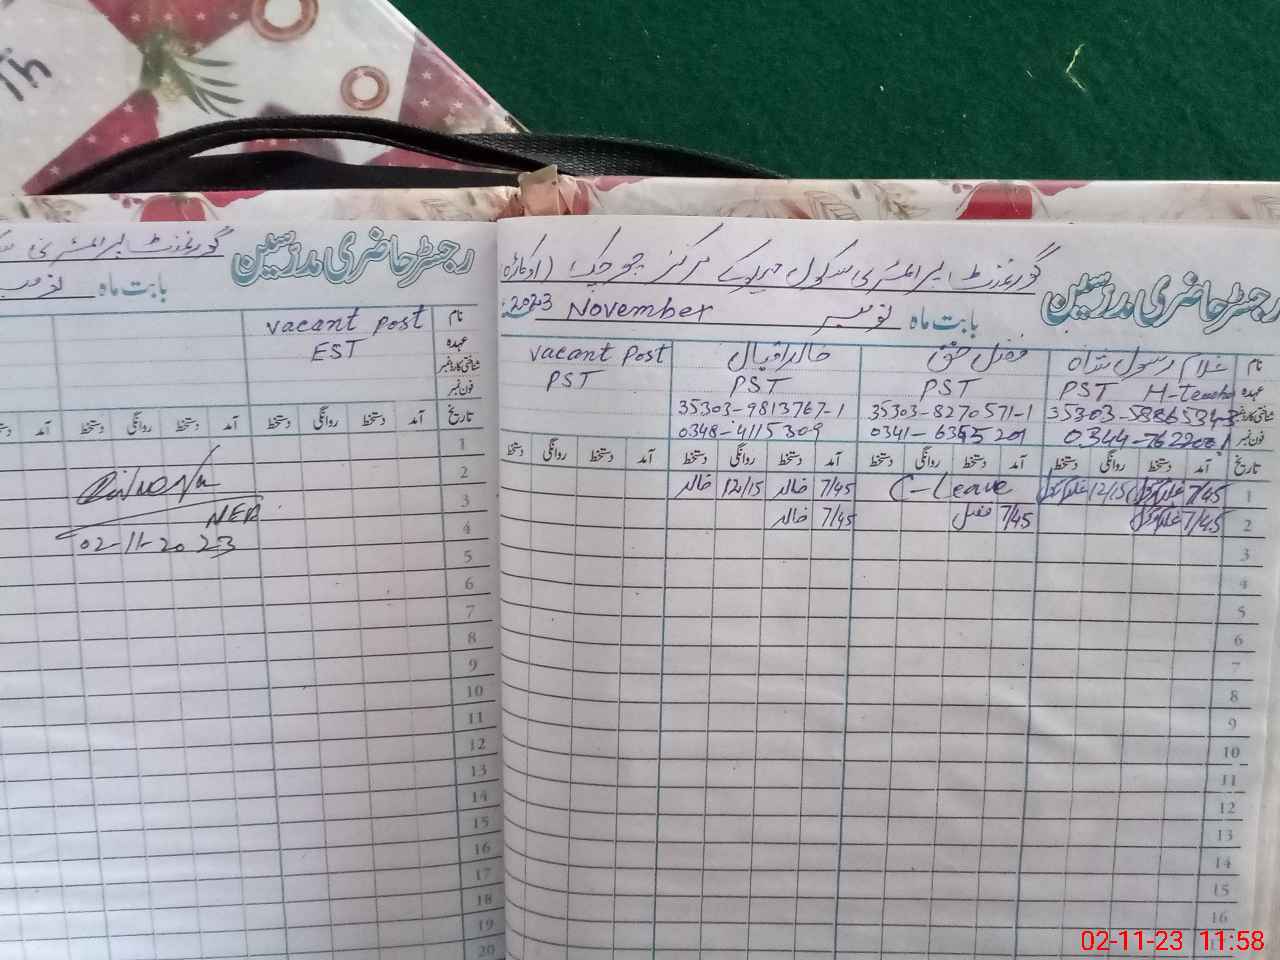 Th
رجسٹر حاضری مدرسین
گورنمنٹ پرائمری سکول
بابت ماہ نومبر
نام vacant post
عہدہ EST
شناختی کارڈ نمبر
فون نمبر
تاریخ آمد دستخط روانگی دستخط آمد دستخط روانگی دستخط آمد
1
2
3
NEB
4
02-11-2023
5
6
7
8
9
10
11
12
13
14
15
16
17
18
19
20
رجسٹر حاضری مدرسین
گورنمنٹ پرائمری سکول مرکز حجرہ (اوکاڑہ
بابت ماہ نومبر November 2023
نام غلام رسول شاہ فضل حق خالد اقبال vacant Post
عہدہ PST H-Teacher PST PST PST
شناختی کارڈ نمبر 35303-8270571-1 35303-9813767-1
فون نمبر 0348-4115309
تاریخ آمد دستخط روانگی دستخط آمد دستخط روانگی دستخط آمد دستخط روانگی دستخط آمد دستخط روانگی دستخط
1 7/45 12/15 C-Leave 7/45 خالد 12/15 خالد
2 7/45 7/45 فضل 7/45 خالد
3
4
5
6
7
8
9
10
11
12
13
14
15
16
02-11-23 11:58